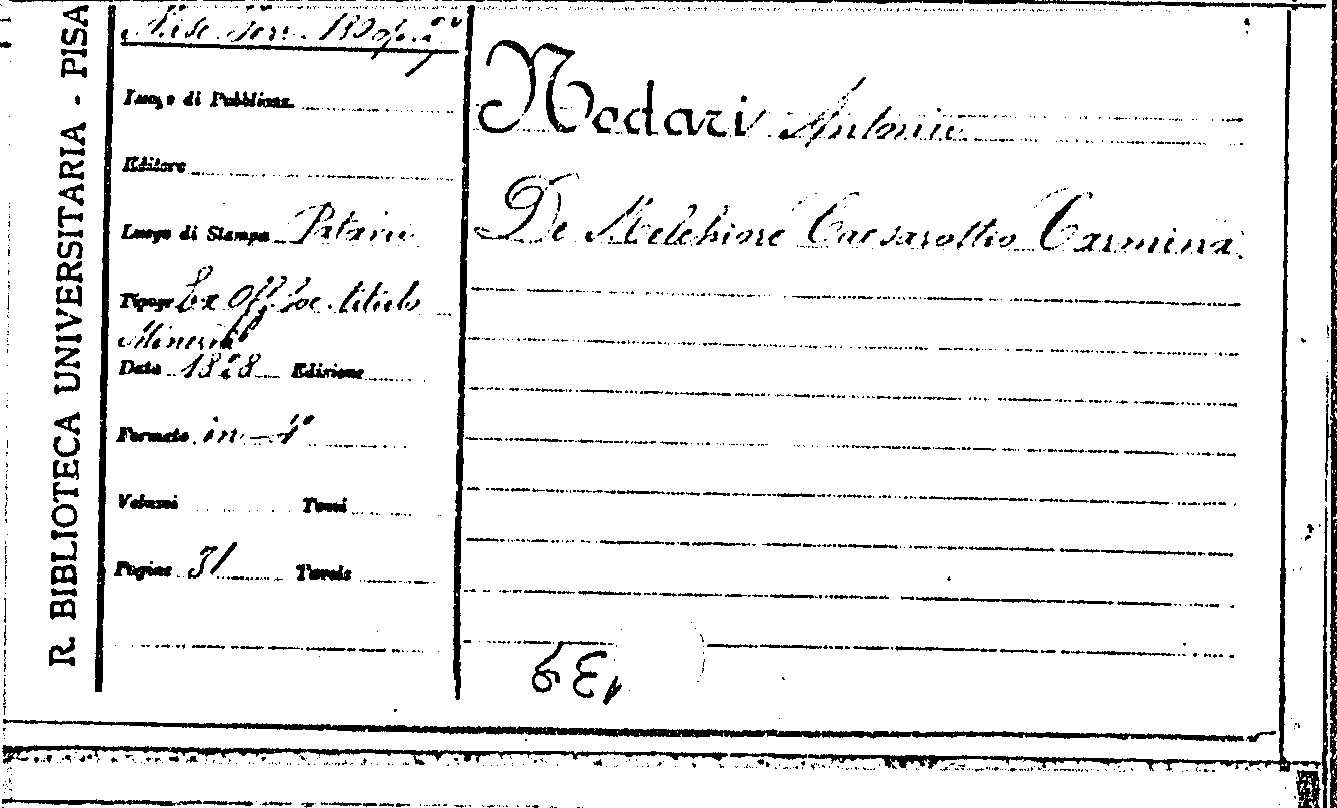 R. BIBLIOTECA UNIVERSITARIA - PISA
Misc. 130 op. 2
Luogo di Pubblicaz.
Editore
Luogo di Stampa Patavii
Tipogr. Ex Off. Soc. titulo
Minerv
Data 1828 Edizione
Formato in-4°
Volumi Tomi
Pagine 31 Tavole
Nodari Antonio
De Melchiore Caesarottio Carmina.
139